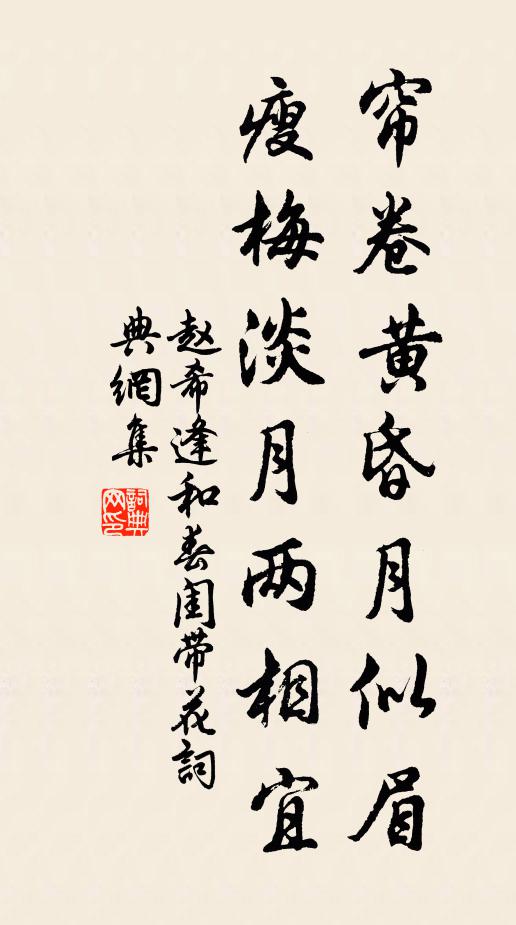 帘卷黄昏月似眉
瘦梅淡月两相宜
赵希逢和春闺带花詞
典網集
詞典
网印